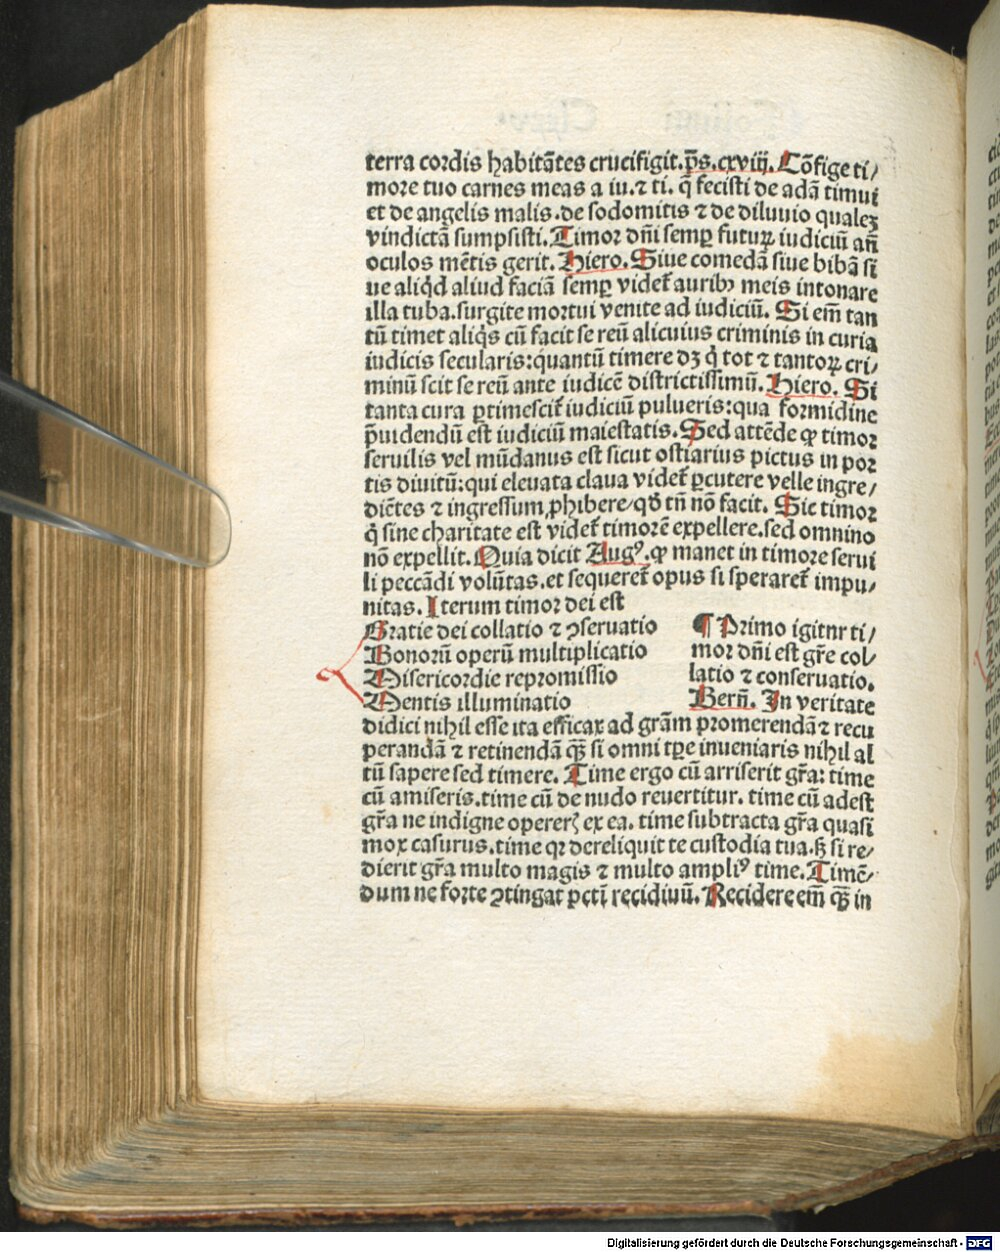 terra cordis habitātes crucifigit.p̄s.cxviij. Cōfige ti/
more tuo carnes meas a iu.⁊ ti. q̄ fecisti de adā timui
et de angelis malis.de sodomitis ⁊ de diluuio qualeꝫ
vindictā sumpsisti. Timor dn̄i semꝑ futuꝝ iudiciū añ
oculos mētis gerit. Hiero. Siue comedā siue bibā si
ue aliq̇d aliud faciā semꝑ videt̄ auribꝰ meis intonare
illa tuba.surgite mortui venite ad iudiciū. Si em̄ tan
tū timet aliq̇s cū facit se reū alicuius criminis in curia
iudicis secularis:quantū timere dꝫ q̇ tot ⁊ tantoꝝ cri/
minū scit se reū ante iudicē districtissimū. Hiero. Si
tanta cura ꝑtimescit̄ iudiciū pulueris:qua formidine
p̄uidendū est iudiciū maiestatis. Sed attēde ꝙ timor
seruilis vel mūdanus est sicut ostiarius pictus in por
tis diuitū:qui eleuata claua videt̄ ꝑcutere velle ingre/
diētes ⁊ ingressum ꝓhibere/qd̄ tn̄ nō facit. Sic timor
q̇ sine charitate est videt̄ timorē expellere.sed omnino
nō expellit. Quia dicit Augꝰ.ꝙ manet in timore serui
li peccādi volūtas.et sequeret̄ opus si speraret̄ impu/
nitas. Iterum timor dei est
Gratie dei collatio ⁊ ꝯseruatio
Bonorū operū multiplicatio
Misericordie repromissio
Mentis illuminatio
¶ Primo igitnr ti/
mor dn̄i est gr̄e col/
latio ⁊ conseruatio.
Bern̄. In veritate
didici nihil esse ita efficax ad grām promerendā ⁊ recu
perandā ⁊ retinendā qꝫ̄ si omni tꝑe inueniaris nihil al
tū sapere sed timere. Time ergo cū arriserit gr̄a: time
cū amiseris.time cū denudo reuertitur. time cū adest
gr̄a ne indigne opereꝛꝭ ex ea. time subtracta gr̄a quasi
mox casurus.time qꝛ dereliquit te custodia tua.sꝫ si re/
dierit gr̄a multo magis ⁊ multo ampliꝰ time. Timē/
dum ne forte ꝯtingat pcti recidiuū. Recidere em̄ qꝫ̄ in
Digitalisierung gefördert durch die Deutsche Forschungsgemeinschaft - DFG